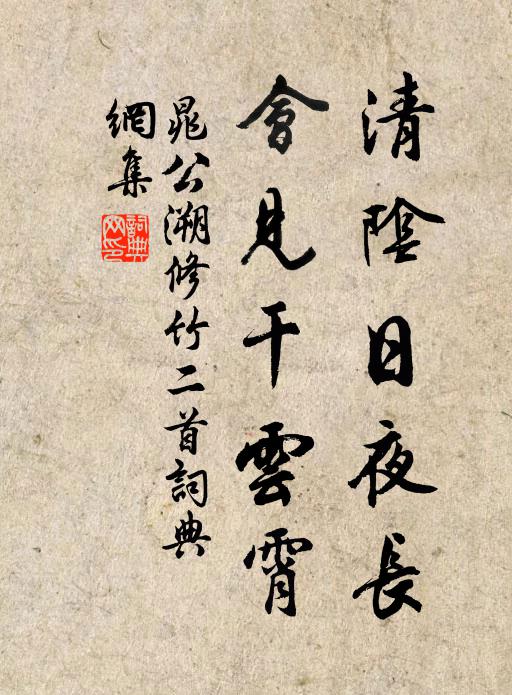 清陰日夜長
會見干雲霄
晁公溯修竹二首詞典
網集
詞典
网印